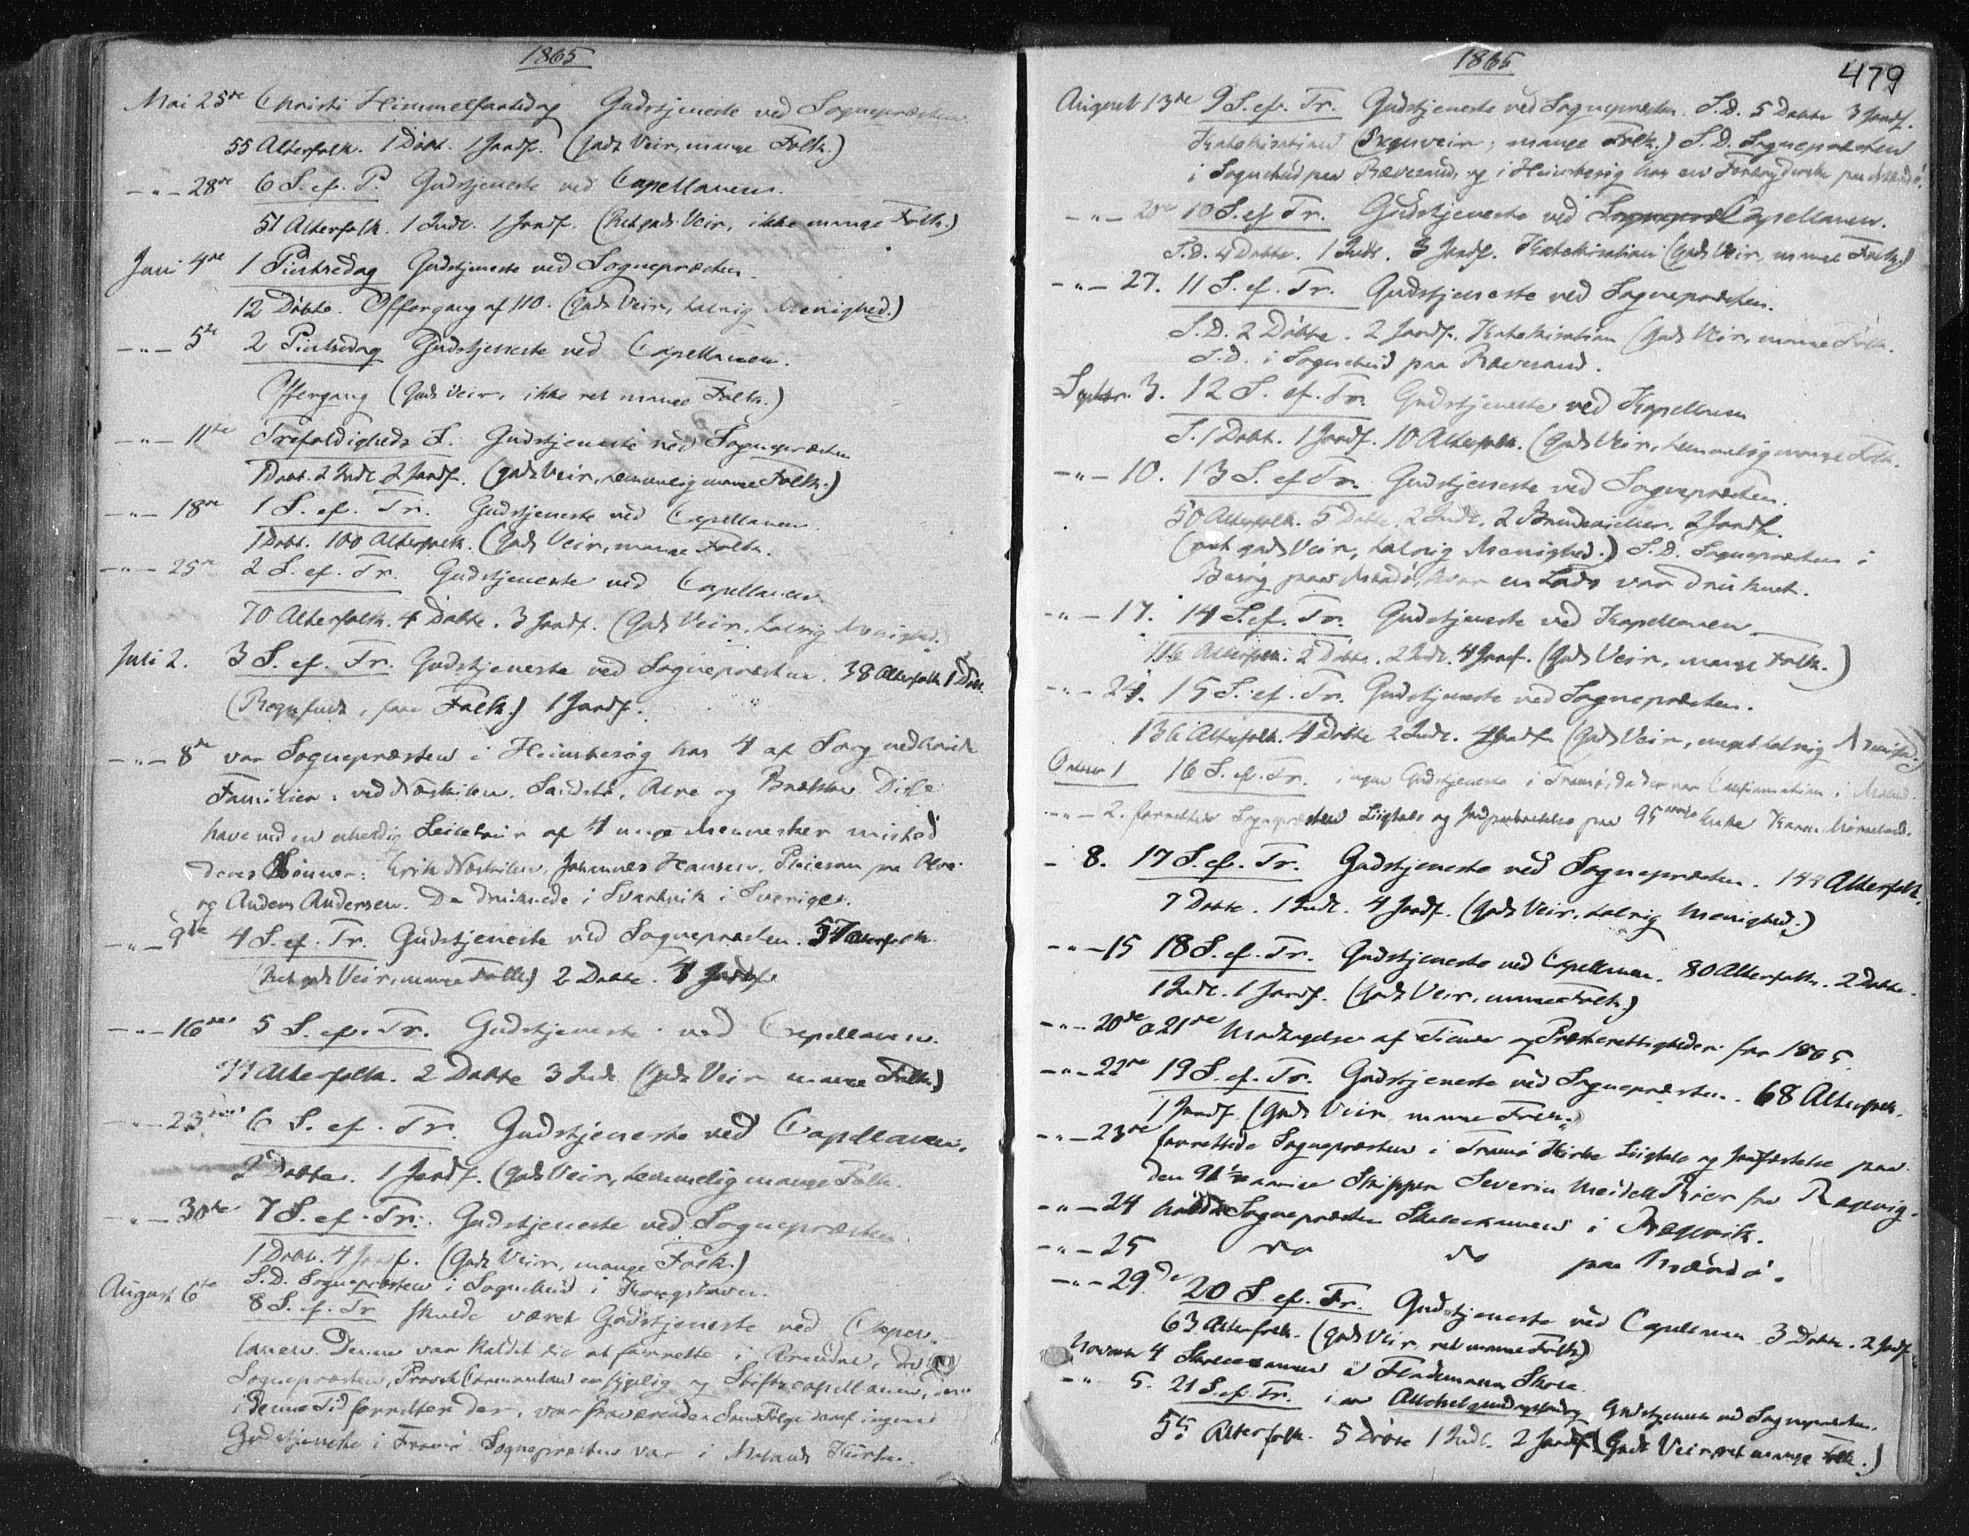 1865
Mai 25de Christi Himmelfartsdag Gudstjeneste ved Sognepræsten
55 Alterfolk. 1 Døbt. 1 Jordf. (godt Veir, mange Folk.)
- " - 28de 6 S. ef. P. Gudstjeneste ved Capellanen.
51 Alterfolk. 1 Indl. 1 Jordf. (Ret godt Veir, ikke mange Folk.)
Juni 4de 1 Pintsedag Gudstjeneste ved Sognepræsten.
12 Døbte. Offergang af 110. (godt Veir, talrig Menighed.)
- " - 5te 2 Pintsedag Gudstjeneste ved Capellanen.
Offergang (Godt Veir, ikke ret mange Folk.)
- " - 11te Trefoldigheds S. Gudstjeneste ved Sognepræsten
1 Døbt. 2 Indl. 2 Jordf. (godt Veir, temmelig mange Folk.)
- " - 18de 1 S. ef. Tr. Gudstjeneste ved Capellanen.
1 Døbt. 100 Alterfolk. (Godt Veir, mange Folk.
- " - 25de 2 S. ef. Tr. Gudstjeneste ved Capellanen
70 Alterfolk. 4 Døbte. 3 Jordf. (Godt Veir, talrig Menighed.)
Juli 2. 3 S. ef. Tr. Gudstjeneste ved Sognepræsten. 38 Alterfolk 1 Døbt.
(Regnfuldt, faae Folk.) 1 Jordf.
- " - 8de var Sognepræsten i Huusbesøg hos 4 af Sorg nedbøiede
Familier: ved Næskilen, Sandstø, Alve og Brække. Disse
have ved en uheldig Seiletour af 4 unge Mennesker mistet
deres Sønner: Erik Næskilen, Johannes Hansen, paa Alve
og Anders Andersen. De druknede i Svartvik i Sverige.
- " - 9de 4 S. ef. Tr. Gudstjeneste ved Sognepræsten. 57 Alterfolk.
(Ret godt Veir, mange Folk) 2 Døbte. 4 Jordf.
- " - 16de 5 S. ef. Tr. Gudstjeneste ved Capellanen.
71 Alterfolk. 2 Døbte 3 Indl. (Godt Veir mange Folk)
- " - 23de 6 S. ef. Tr. Gudstjeneste ved Capellanen.
2 Døbte. 1 Jordf. (godt Veir, temmelig mange Folk.
- " - 30te 7 S. ef. Tr. Gudstjeneste ved Sognepræsten.
1 Døbt. 4 Jordf. (Godt Veir, mange Folk.)
S.D. Sognepræsten i Sognebud i Kongshavn.
August 6te 8 S. ef. Tr skulde været Gudstjeneste ved Capel-
lanen. Denne var kaldet til at forrette i Arendal, da
Sognepræsten, Provst er sygelig og Stiftscapellanen, den
i denne Tid forretter der, var fraværende. Som Følge deraf ingen
Gudstjeneste i Tromø. Sognepræsten var i Molands Kirke.
1865
479
August 13de 9 S. ef. Tr. Gudstjeneste ved Sognepræsten. S.D. 5 Døbte 3 Jordf.
Katekisation (Regnveir, mange Folk.) S.D. Sognepræsten
i Sognebud paa Revesand, og i Huusbesøg hos en paa Merdø.
- " - 20de 10 S. ef Tr. Gudstjeneste ved Capellanen.
S.D. 4 Døbte. 1 Indl. 3 Jordf. Katekisation (godt Veir, mange Folk.)
- " - 27. 11 S. ef. Tr. Gudstjeneste ved Sognepræsten.
S.D. 2 Døbte. 2 Jordf. Katekisation (godt Veir, mange Folk.
S.D. i Sognebud paa Revesand.
Septbr. 3. 12 S. ef. Tr. Gudstjeneste ved Kapellanen
S. 1 Døbt. 1 Jordf. 10 Alterfolk. (Godt Veir, temmelig mange Folk.
- " - 10. 13 S. ef Tr. Gudstjeneste ved Sognepræsten.
50 Alterfolk. 5 Døbte. 2 Indl. 2 Brudevielser. 2 Jordf.
(ret godt Veir, talrig Menighed.) S.D. Sognepræsten i
Besøg paa Merdø, hvor en Lods var druknet.
- " - 17. 14 S. ef. Tr. Gudstjeneste ved Kapellanen
116 Alterfolk. 2 Døbte. 2 Indl. 4 Jordf. (Godt Veir, mange Folk.)
- " - 24. 15 S. ef. Tr. Gudstjeneste ved Sognepræsten.
136 Alterfolk. 4 Døbte 2 Indl. 4 Jordf (Godt Veir, meget talrig Menighed.)
October 1 16 S. ef. Tr. ingen Gudstjeneste i Tromø, da der var Confirmation i Moland.
- " - 2. forrettede Sognepræsten Liigtale og Jordpaakastelse paa 95 aarige Enke Karen
- 8. 17 S. ef. Tr. Gudstjeneste ved Sognepræsten. 144 Alterfolk.
7 Døbte. 1 Indl. 4 Jordf. (Godt Veir, talrig Menighed.)
- " - 15 18 S. ef. Tr. Gudstjeneste ved Capellanen. 80 Alterfolk. 2 Døbte.
1 Indl. 1 Jordf. (Godt Veir, mange Folk.)
- " - 20de o 21de Modtagelse af Tiende og Præsterettigheder for 1865.
- " - 22de 19 S. ef. Tr. Gudstjeneste ved Sognepræsten. 68 Alterfolk.
1 Jordf. (Godt Veir, mange Folk)
- " - 23de forrettede Sognepræsten i Tromø Kirke Liigtale og Jordfæstelse paa
den 91 1/2 aarige Skipper Severin Meidell Bier fra Rægevig.
- " - 24 holdt Sognepræsten Skoleexamen i Rægevik.
- " - 25 do do paa Mærdø.
- " - 29de 20 S. ef. Tr. Gudstjeneste ved Capellanen 3 Døbte. 2 Jordf.
63 Alterfolk. (godt Veir, ret mange Folk)
November 4 Skoleexamen i Flademoens Skole.
- " 5. 21 S. ef. Tr. i.e. Allehelgensdag Gudstjeneste ved Sognepræsten.
55 Alterfolk. 5 Døbte 1 Indl. 2 Jordf (Godt Veir, ret mange Folk.)